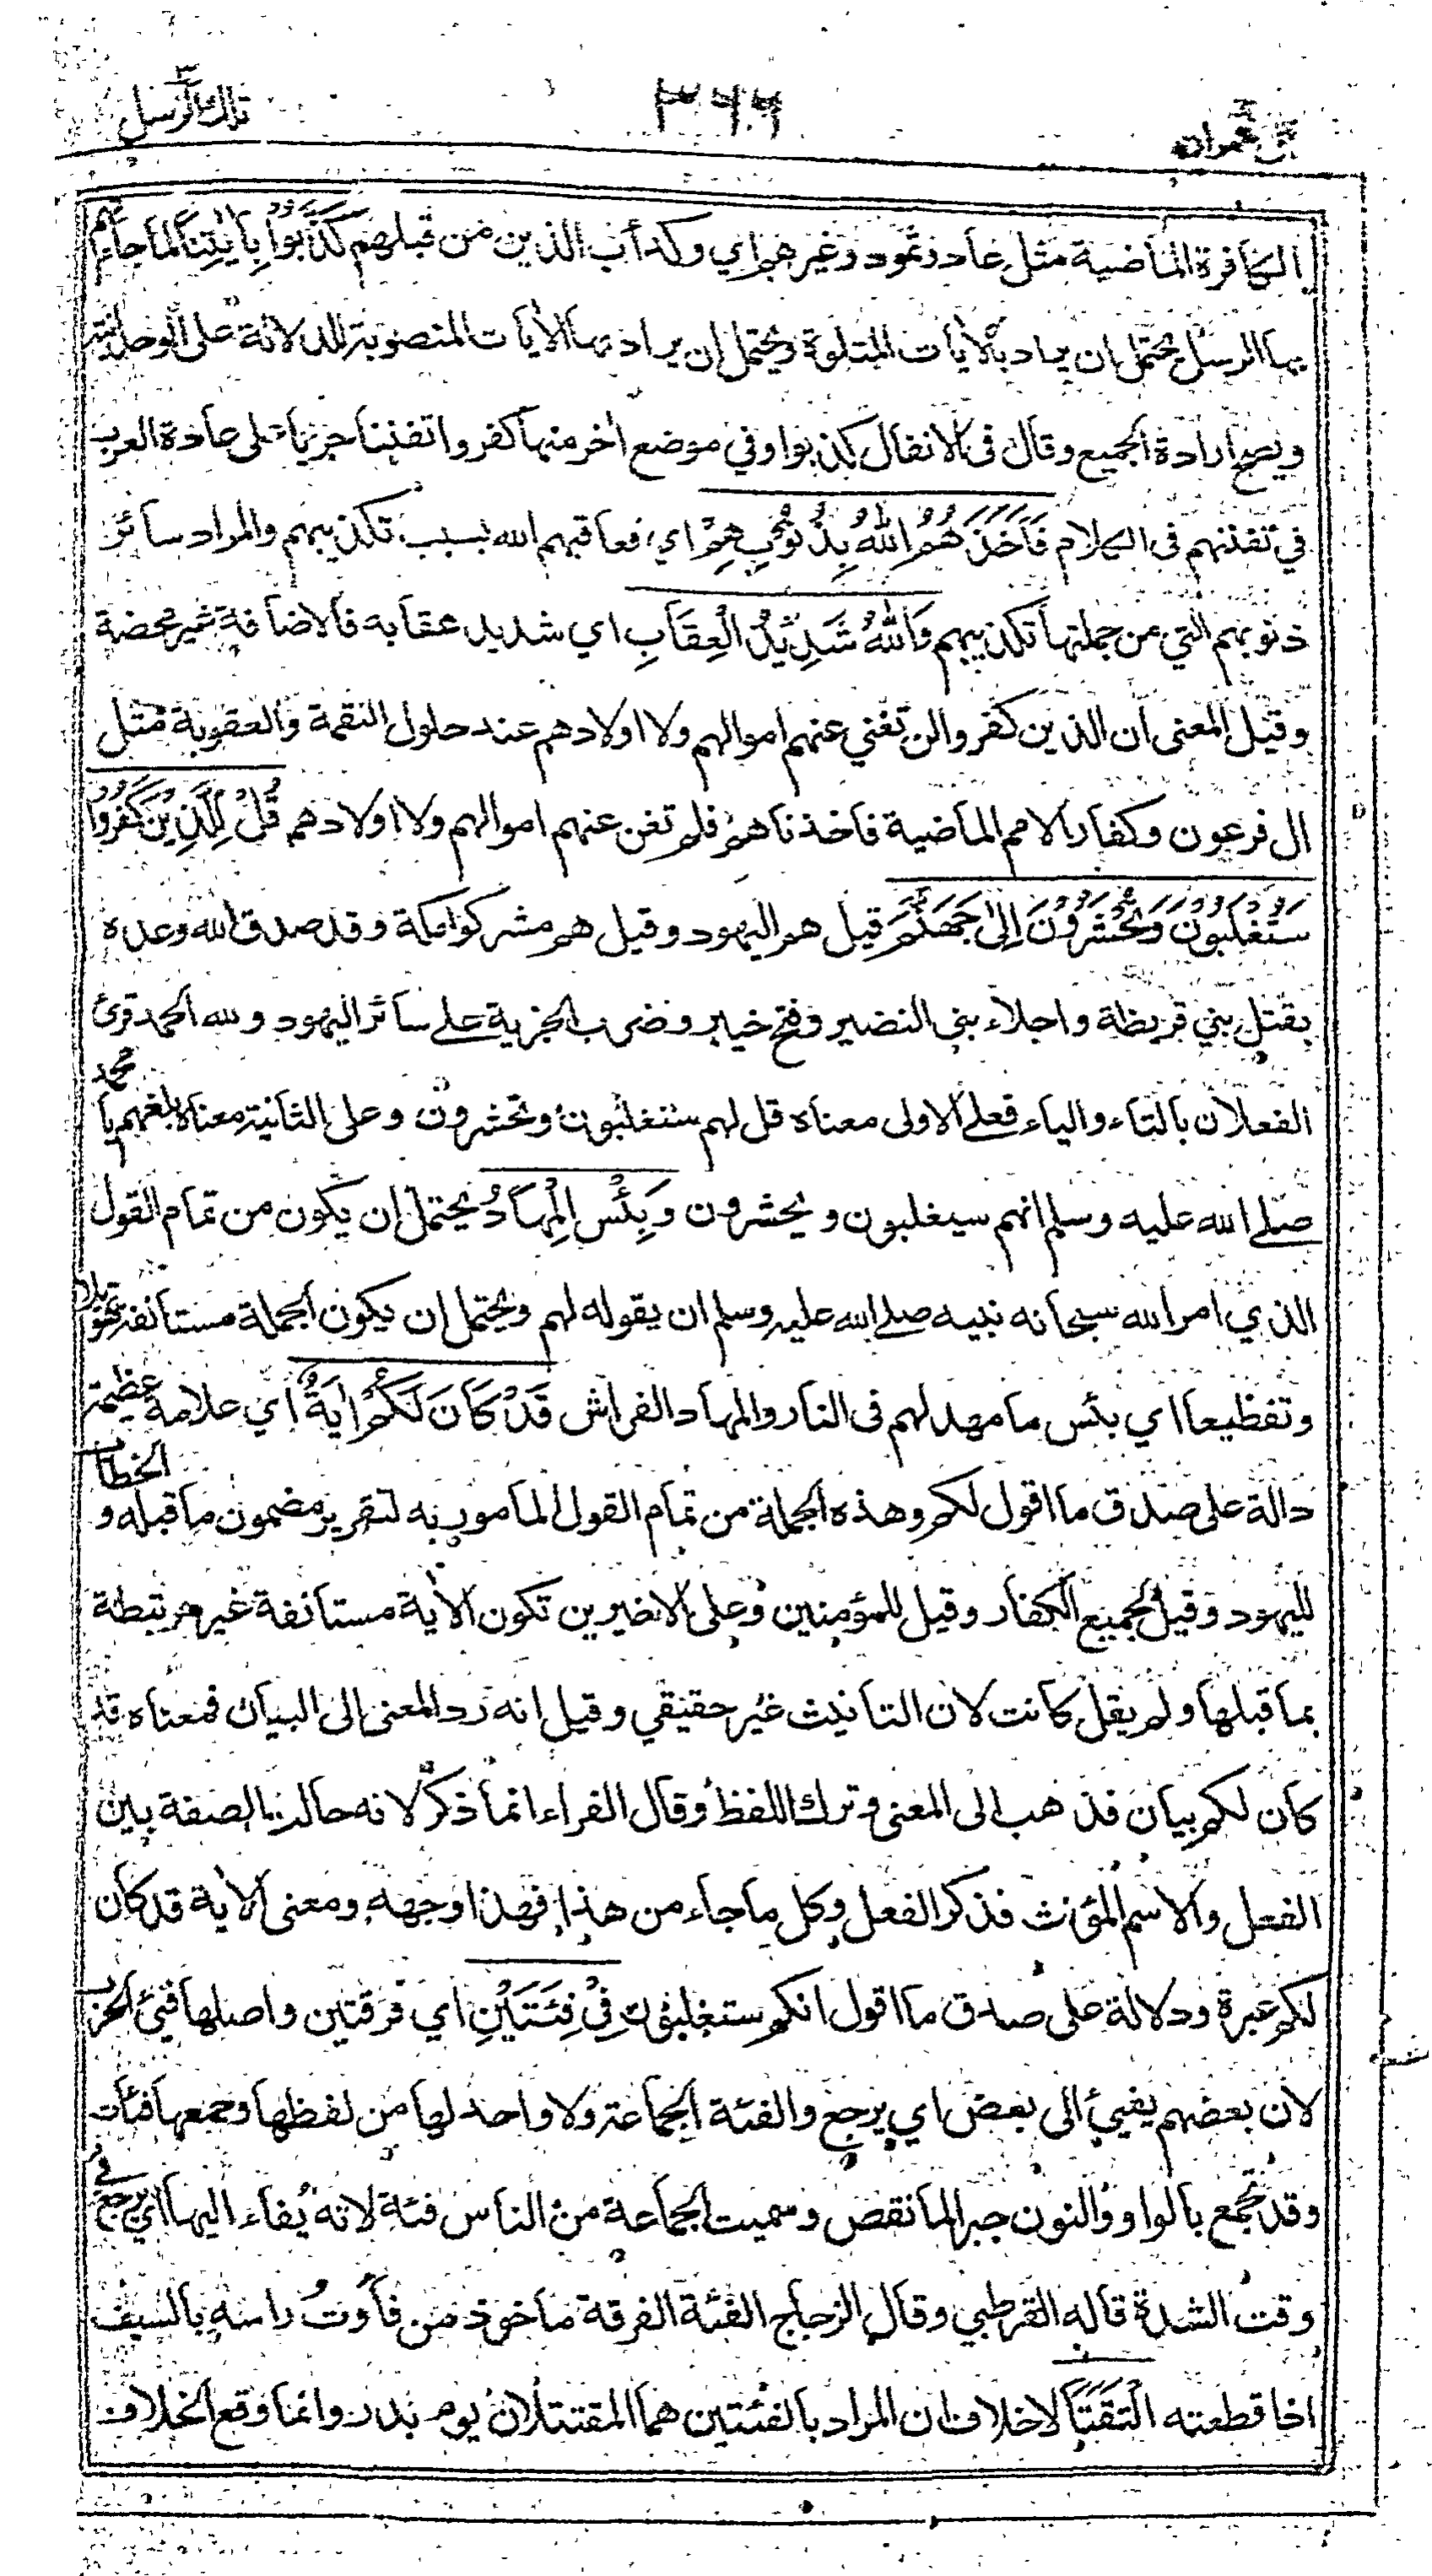 تلك الرسل ٣
٣٦٦
آل عمران ٣
الكافرة الماضية مثل عاد وثمود وغيرهم اي وكدأب الذين من قبلهم كَذَّبُوا بِاٰيٰتِنَا لما جاءتهم
بها الرسل يحتمل ان يراد بالأيات المتلوة ويحتمل ان يراد بها الأيات المنصوبة للدلالة على الوحدانية
ويصح ارادة الجميع وقال فى الانفال كذبوا وفي موضع أخر منها كفروا تفننا جريا على عادة العرب
في تفننهم فى الكلام فَاَخَذَهُمُ اللّٰهُ بِذُنُوْبِهِمْ اي فعاقبهم الله بسبب تكذيبهم والمراد سائر
ذنوبهم التي من جملتها تكذيبهم وَاللّٰهُ شَدِيْدُ الْعِقَابِ اي شديد عقابه فالاضافة غير محضة
وقيل المعنى ان الذين كفروا لن تغني عنهم اموالهم ولا اولادهم عند حلول النقمة والعقوبة مثل
ال فرعون وكفار الامم الماضية فاخذناهم فلم تغن عنهم اموالهم ولا اولادهم قُلْ لِّلَّذِيْنَ كَفَرُوْا
سَتُغْلَبُوْنَ وَتُحْشَرُوْنَ اِلٰى جَهَنَّمَ قيل هم اليهود وقيل هم مشركوا مكة وقد صدق الله وعده
بقتل بني قريظة واجلاء بني النضير وفتح خيبر وضرب الجزية على سائر اليهود ولله الحمد قرئ
الفعلان بالتاء والياء فعلى الاولى معناه قل لهم ستغلبون وتحشرون وعلى الثانية معناه بلغهم يا محمد
صلى الله عليه وسلم انهم سيغلبون ويحشرون وَبِئْسَ الْمِهَادُ يحتمل ان يكون من تمام القول
الذي امر الله سبحانه نبيه صلى الله عليه وسلم ان يقوله لهم ويحتمل ان يكون الجملة مستأنفة تهويلا
وتفظيعا اي بئس ما مهد لهم فى النار والمهاد الفراش قَدْ كَانَ لَكُمْ اٰيَةٌ اي علامة عظيمة
دالة على صدق ما اقول لكم وهذه الجملة من تمام القول المأمور به لتقرير مضمون ما قبله والخطاب
لليهود وقيل لجميع الكفار وقيل للمؤمنين وعلى الاخيرين تكون الأية مستانفة غير مرتبطة
بما قبلها ولم يقل كانت لان التانيث غير حقيقي وقيل انه رد المعنى الى البيان فمعناه قد
كان لكم بيان فذهب الى المعنى وترك اللفظ وقال الفراء انما ذكر لانه حالت الصفة بين
الفعل والاسم المؤنث فذكر الفعل وكل ما جاء من هذا فهذا وجهه ومعنى الأية قد كان
لكم عبرة ودلالة على صدق ما اقول انكم ستغلبون فِيْ فِئَتَيْنِ اي فرقتين واصلها فيئ الحرب
لان بعضهم يفيئ الى بعض اي يرجع والفئة الجماعة ولا واحد لها من لفظها وجمعها فئات
وقد تجمع بالواو والنون جبر الما نقص وسميت الجماعة من الناس فئة لانه يُفاء اليها اي يرجع في
وقت الشدة قاله القرطبي وقال الزجاج الفئة الفرقة ماخوذ من فأوتُ راسه بالسيف
اذا قطعته الْتَقَتَا لا خلاف ان المراد بالفئتين هما المقتتلان يوم بدر وانما وقع الخلاف